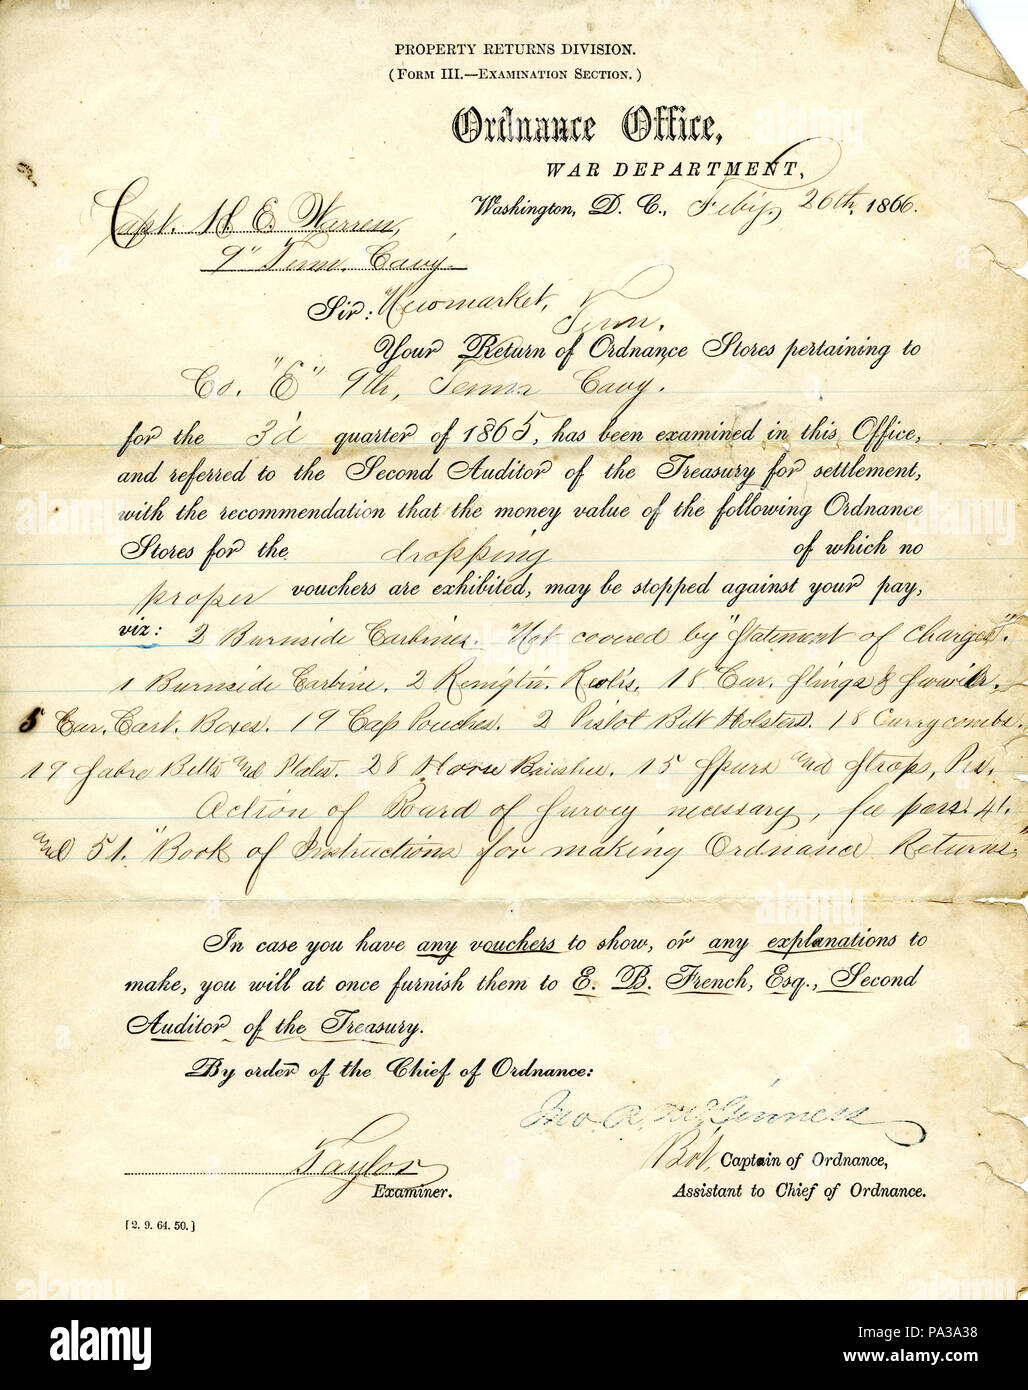 PROPERTY RETURNS DIVISION.
(FORM III.—EXAMINATION SECTION.)
Ordnance Office,
WAR DEPARTMENT,
Washington, D. C., Feby. 26th, 1866.
Capt. H. E. Warren,
9" Tenn. Cavy.
Sir: Newmarket, Tenn.
Your Return of Ordnance Stores pertaining to
Co. "E" 9th, Tenn Cavy.
for the 3'd quarter of 1865, has been examined in this Office,
and referred to the Second Auditor of the Treasury for settlement,
with the recommendation that the money value of the following Ordnance
Stores for the dropping of which no
proper vouchers are exhibited, may be stopped against your pay,
viz: 2 Burnside Carbines. "Not covered by "Statement of Charges".
1 Burnside Carbine. 2 Remigtn. Revlr's. 18 Car. Slings & Swivls.
5 Car. Cart. Boxes. 19 Cap Pouches. 2 Pistol Belt Holsters. 18 Currycombs.
19 Sabre Belts and Plates. 28 Horse Brushes. 15 Spurs and Straps, Prs.
Action of Board of Survey necessary, see pars. 41.
and 51. "Book of Instructions for making Ordnance Returns."
In case you have any vouchers to show, or any explanations to
make, you will at once furnish them to E. B. French, Esq., Second
Auditor of the Treasury.
By order of the Chief of Ordnance:
Jno. R. McGinness
Taylor
Bvt. Captain of Ordnance,
Examiner.
Assistant to Chief of Ordnance.
[2. 9. 64. 50.]
alamy
Image ID: PA3A38
www.alamy.com